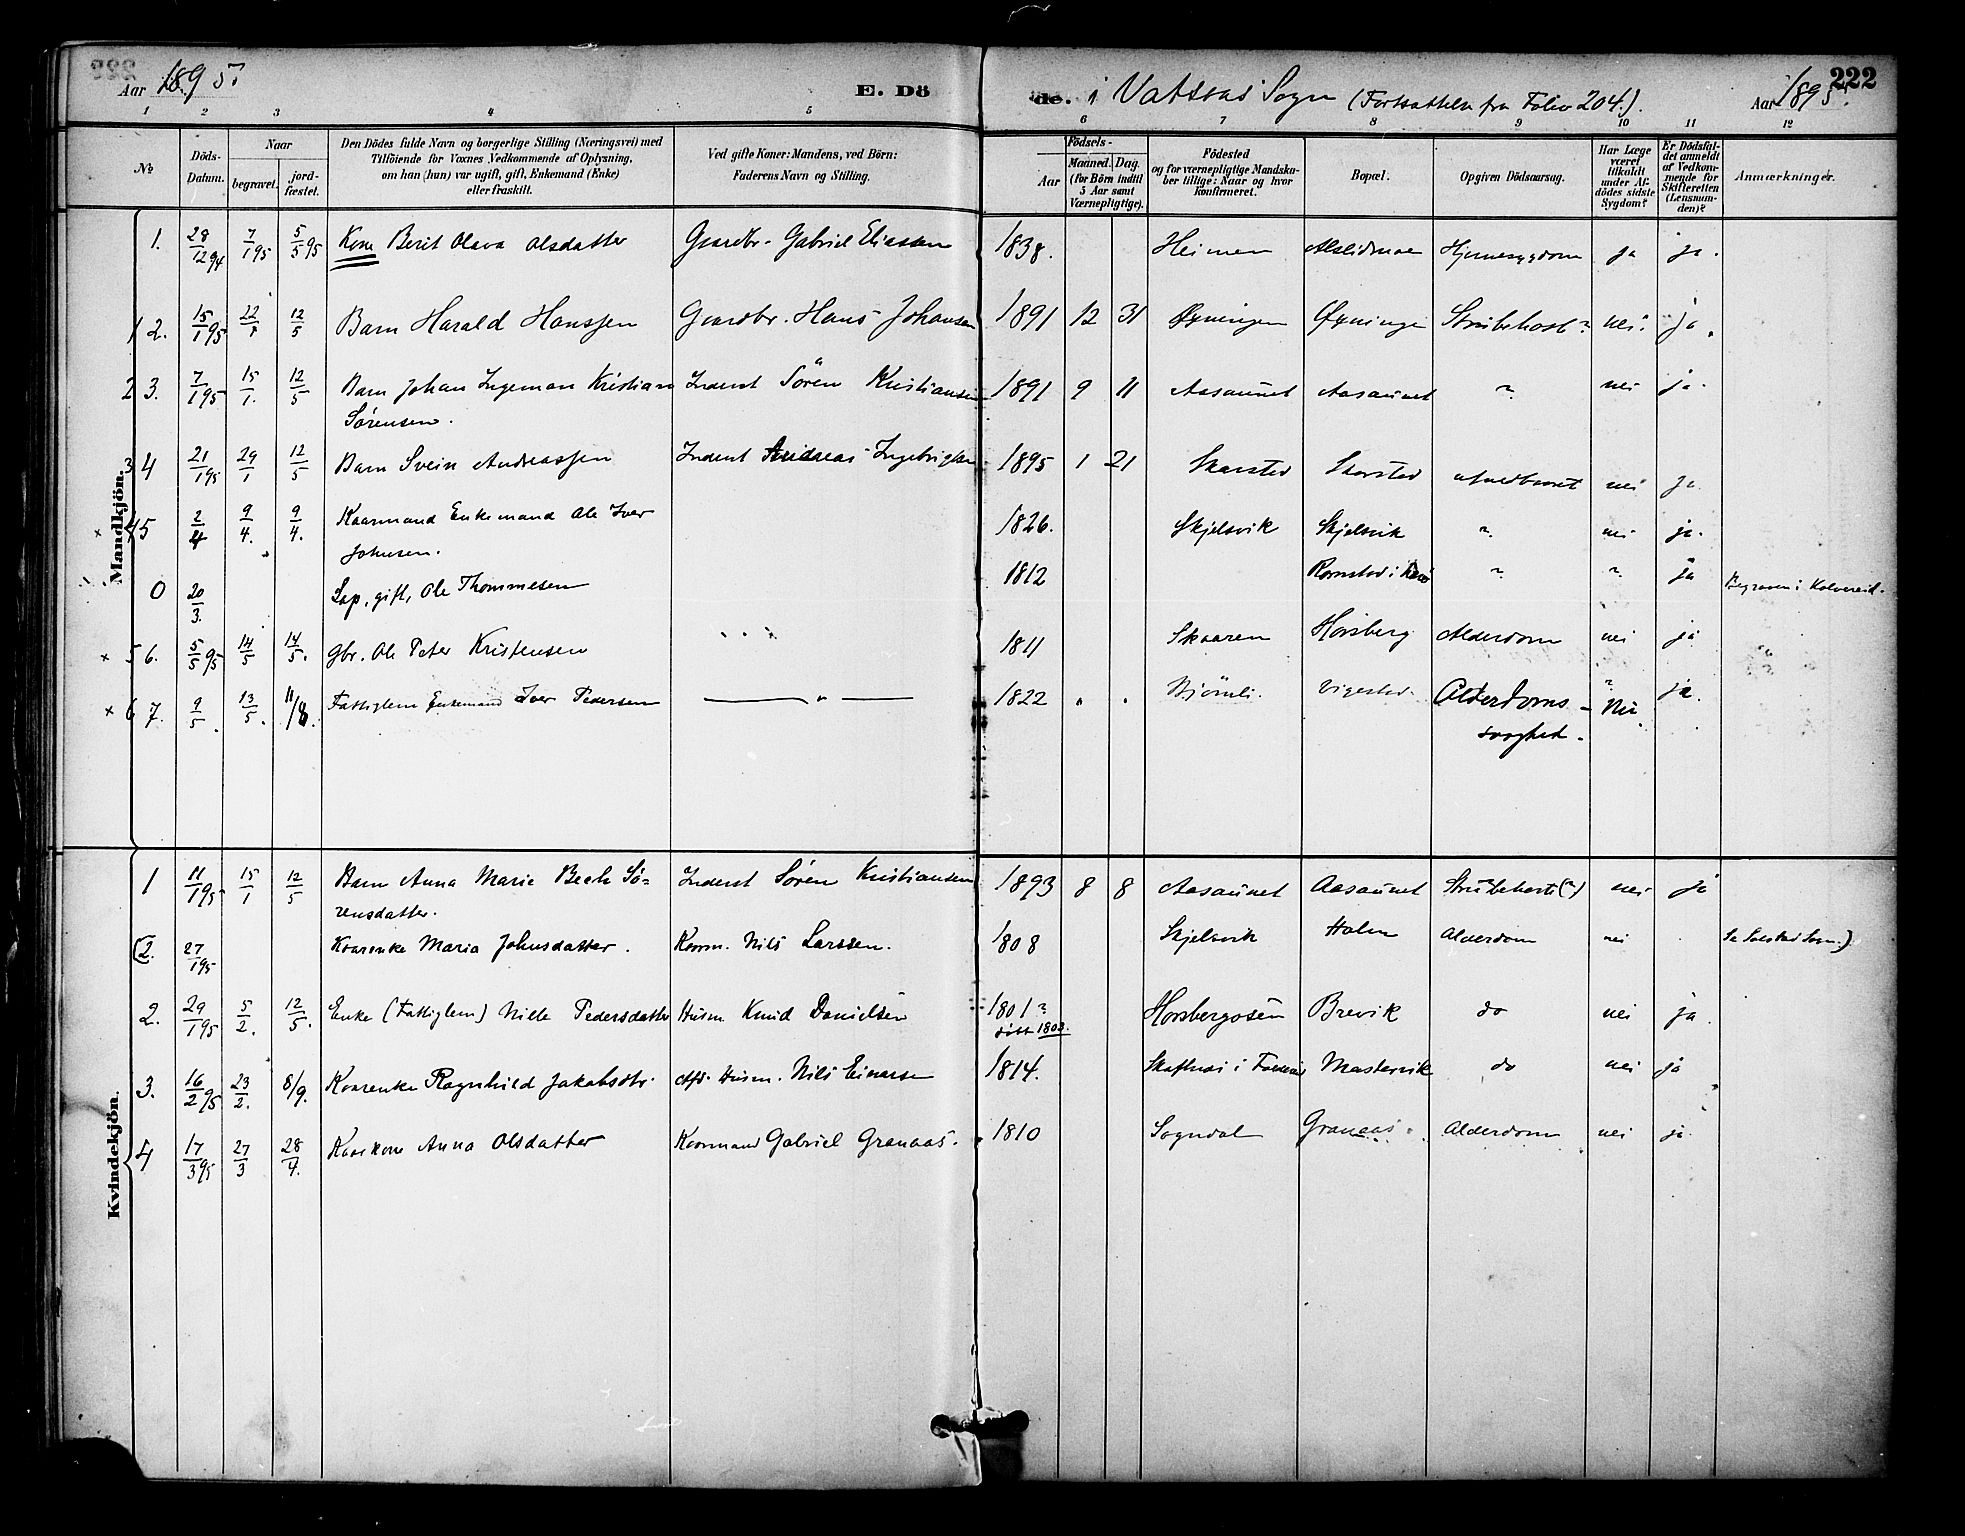 Aar 1895.
E. Dö
de. i Vatsaas Sogn (Fortsættelse fra Folio 204.).
Aar 1895.
222
1 2 3 4 5 6 7 8 9 10 11 12
No
Döds-Datum.
Naar
begravet.
jordfæstet.
Den Dödes fulde Navn og borgerlige Stilling (Næringsvei) med
Tilföiende for Voxnes Vedkommende af Oplysning,
om han (hun) var ugift, gift, Enkemand (Enke)
eller fraskilt.
Ved gifte Koner: Mandens, ved Börn:
Faderens Navn og Stilling.
Födsels-
Aar
Maaned. Dag.
(for Börn indtil
5 Aar samt
Værnepligtige).
Födested
og for værnepligtige Mandska-
ber tillige: Naar og hvor
konfirmeret.
Bopæl.
Opgiven Dödsaarsag.
Har Læge
været
tilkaldt
under Af-
dödes sidste
Sygdom?
Er Dödsfal-
det anmeldt
af Vedkom-
mende for
Skifteretten
(Lensman-
den)?
Anmærkninger.
Mandkjön.
1. 28/12 94 7/1 95 5/5 95 Kone Berit Olava Olsdatter Gaardbr. Gabriel Eliassen 1838. Heimen Hjernesygdom ja ja.
1 2. 15/1 95 22/1 12/5 Barn Harald Hanssen Gaardbr. Hans Johansen 1891 12 31 Øyningen Øyningen Strubehost? nei. ja.
2 3. 7/1 95 15/1. 12/5 Barn Johan Ingeman Kristian Inderst Sören Kristiansen 1891 9 11 Aasaunet Aasaunet ? nei ja.
Sørensen.
3 4 21/1 95 29/1 12/5 Barn Svein Andreassen Inderst Andreas Ingebrigtsen 1895 1 21 Skarsted Skarsted nei ja.
x 4 5 2/4 9/4. 9/4. Kaarmand Enkemand Ole Iver 1826. Skjelsvik Skjelsvik ? nei ja.
Johnsen.
0 20/3. Lap, gift, Ole Thommesen 1812 ? ? ja Begraven i Kolvereid.
x 5 6. 5/5 95 14/5 14/5. Gbr. Ole Peter Kristensen 1811 Skaaren Horsberg Alderdom nei ja
x 6 7. 9/5. 13/5. 11/8. Fattiglem Enkemand Iver Pedersen — „ — 1822 „ „ Bjömli. Vigested. Alderdoms- ? Nei. ja.
svaghed.
Kvindekjön.
1 11/1 95 15/1 12/5 Barn Anna Marie Bech Sö- Inderst Sören Kristiansen 1893 8 8 Aasaunet Aasaunet Strubehoste(?) nei ja
rensdatter.
(2. 27/1 95 Kaarenke Maria Johnsdatter. Kaarm. Nils Larssen. 1808 Skjelsvik Holm Alderdom nei
2. 29/1 95 5/2. 12/5. Enke (Fattiglem) Nille Pedersdatter Husm. Knud Danielsen 1801? Horsbergosen Brevik do nei ja.
døbt 1803.
3. 16/2 95 23/2. 8/9. Kaarenke Ragnhild Jakobsdtr. Afd. Husm. Nils Einarsen 1814. Mastervik do nei ja
4 17/3 95 27/3 28/4. Kaarkone Anna Olsdatter Kaarmand Gabriel Granaas. 1810 Sogndal Granaas. Alderdom nei ja.